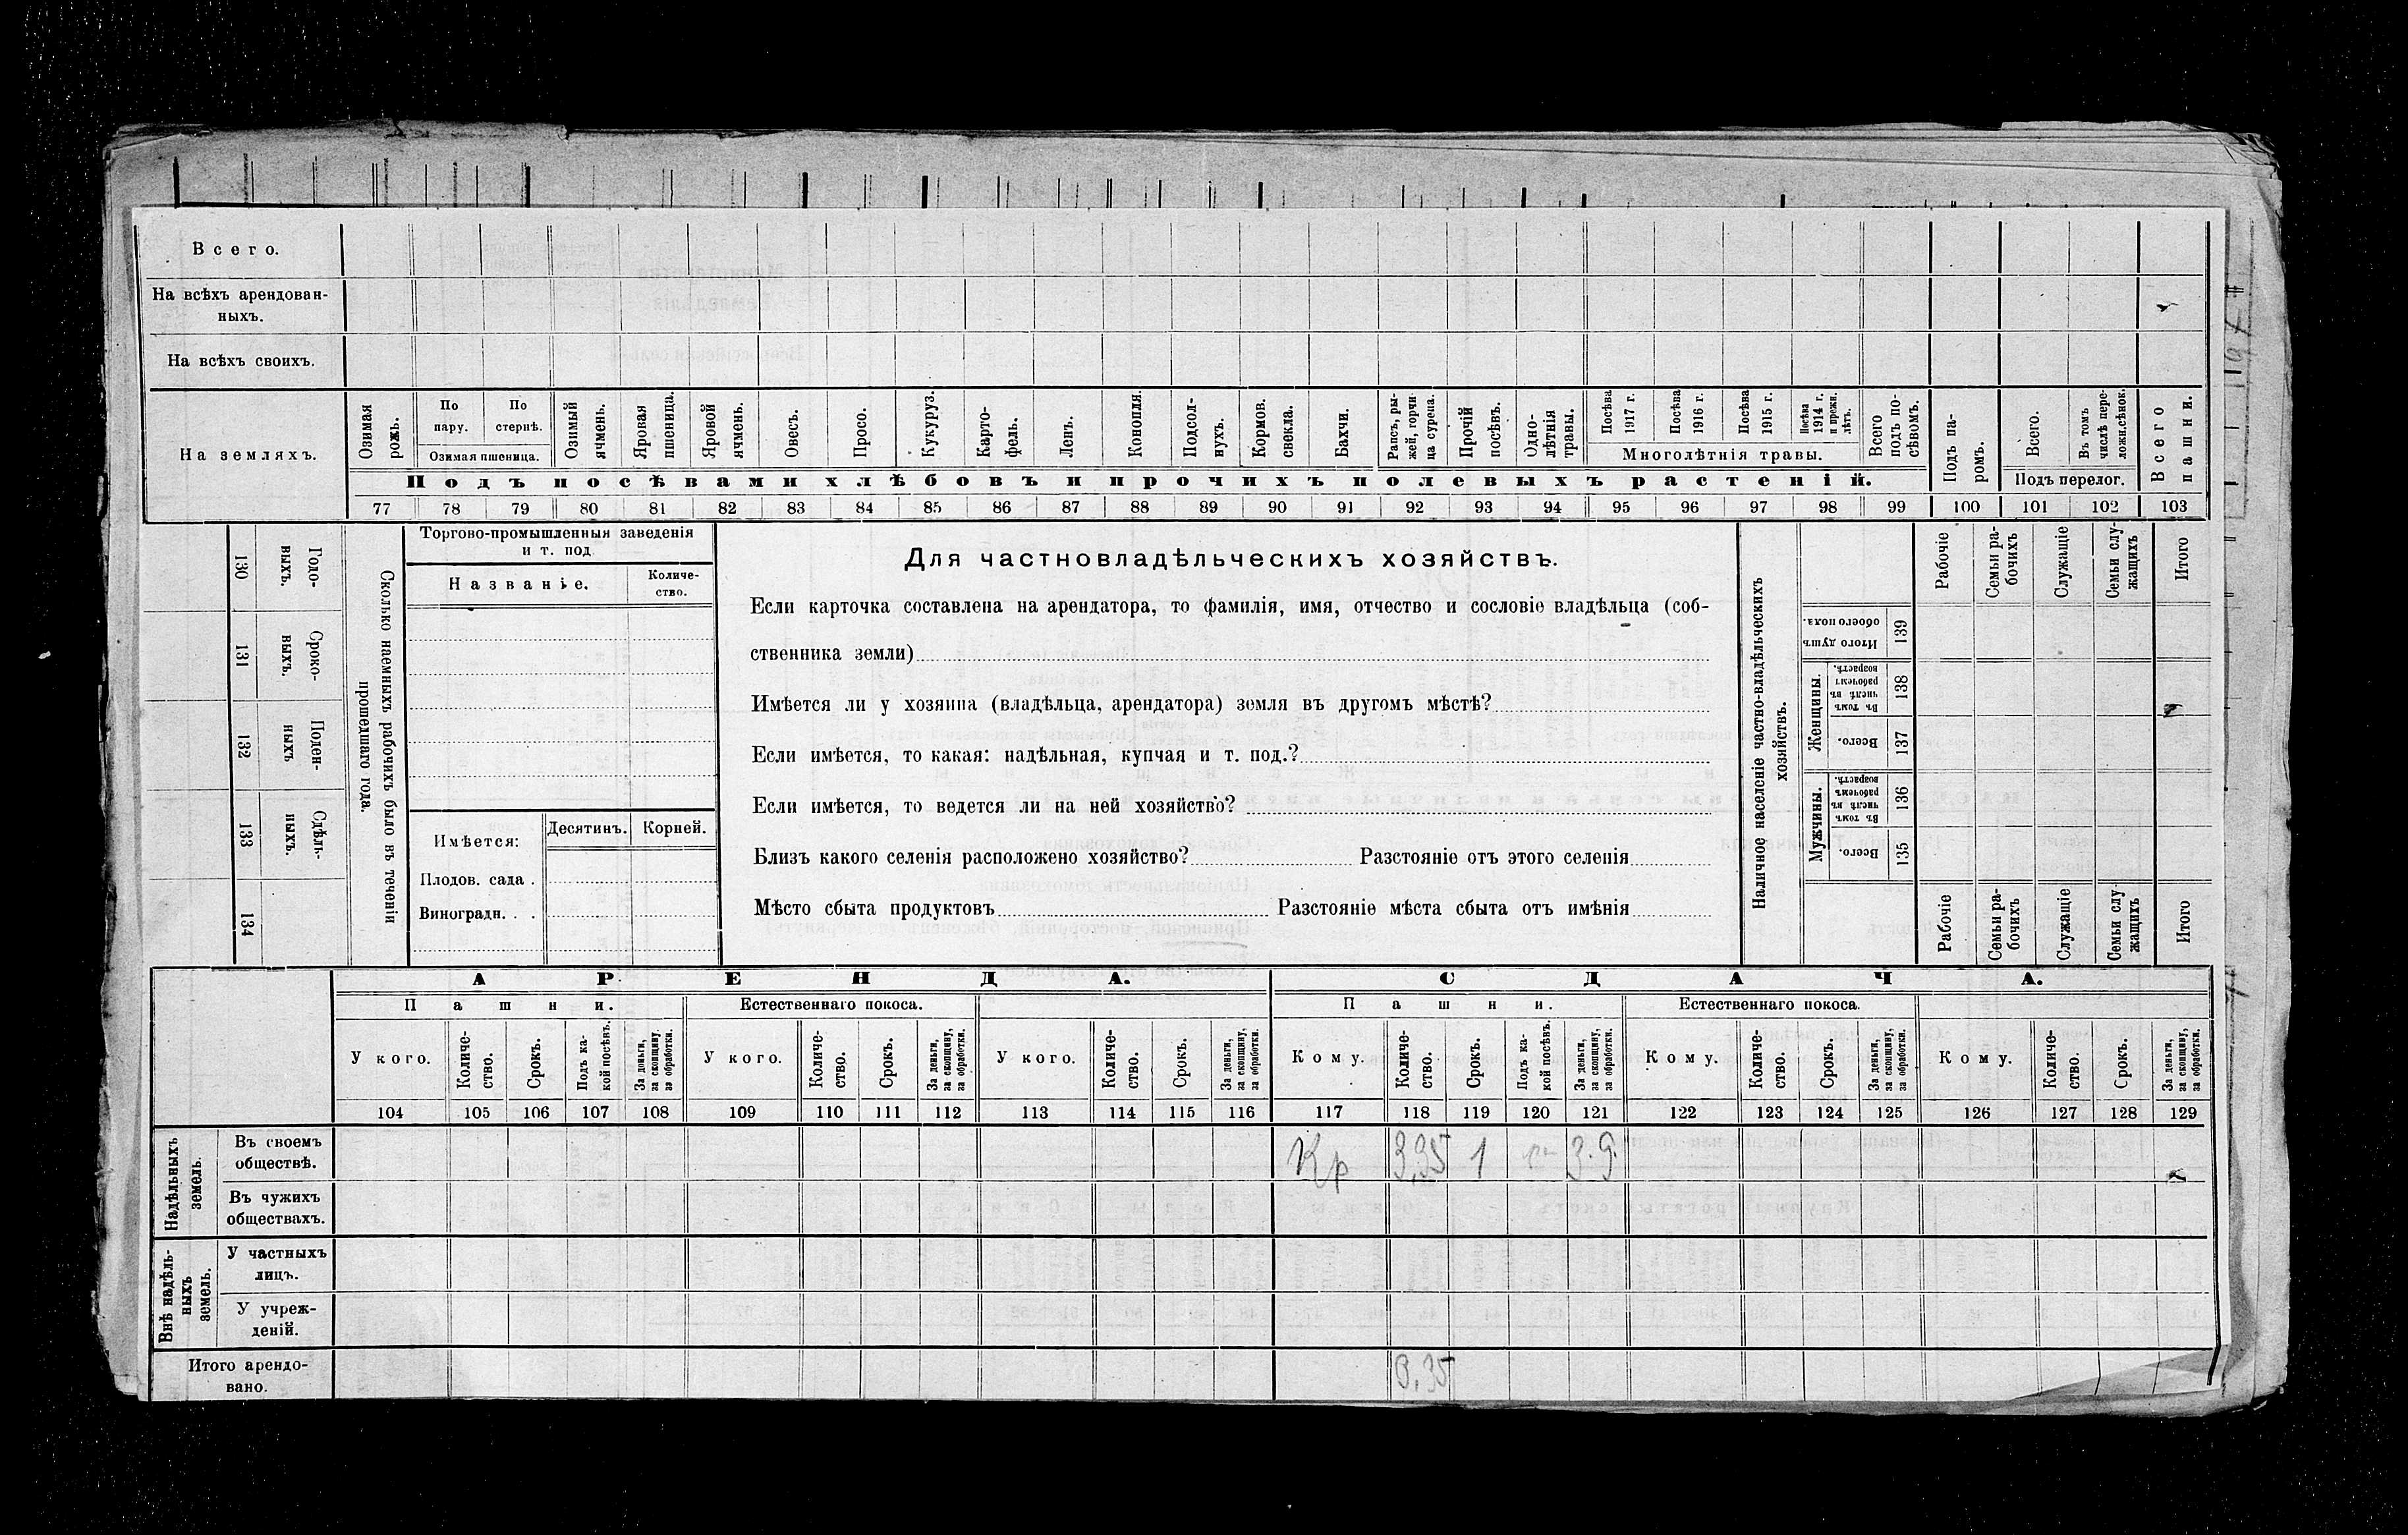 Всего.
На всѣхъ арендован-
ныхъ.
На всѣхъ своихъ.
На земляхъ.
Озимая рожь.
По пару.
По стернѣ.
Озимая пшеница.
Озимый ячмень.
Яровая пшеница.
Яровой ячмень.
Овесъ.
Просо.
Кукуруз.
Карто-
фель.
Ленъ.
Конопля.
Подсол-
нухъ.
Кормов. свекла.
Бахчи.
Рапсъ, ры-
жей, горчи-
ца сурепа.
Прочій посѣвъ.
Одно-
лѣтнія травы.
Посѣва 1917 г.
Посѣва 1916 г.
Посѣва 1915 г.
Посѣва 1914 г. и прежн. лѣтъ.
Многолѣтнія травы.
Всего подъ по-
сѣвомъ.
Подъ посѣвами хлѣбовъ и прочихъ полевыхъ растеній.
Подъ па-
ромъ.
Всего.
Въ томъ числѣ пере-
ложн.сѣнок.
Подъ перелог.
Всего пашни.
77 78 79 80 81 82 83 84 85 86 87 88 89 90 91 92 93 94 95 96 97 98 99 100 101 102 103
130
Годо-
выхъ.
131
Сроко-
выхъ.
132
Поден-
ныхъ
133
Сдѣль-
ныхъ.
134
Сколько наемныхъ рабочихъ было въ теченіи
прошедшаго года.
Торгово-промышленныя заведенія
и т. под
Названіе.
Количе-
ство.
Имѣется:
Десятинъ.
Корней.
Плодов. сада .
Виноградн. . .
Для частновладѣльческихъ хозяйствъ.
Если карточка составлена на арендатора, то фамилія, имя, отчество и сословіе владѣльца (соб-
ственника земли)
Имѣется ли у хозяина (владѣльца, арендатора) земля въ другомъ мѣстѣ?
Если имѣется, то какая: надѣльная, купчая и т. под.?
Если имѣется, то ведется ли на ней хозяйство?
Близъ какого селенія расположено хозяйство? Разстояніе отъ этого селенія
Мѣсто сбыта продуктовъ Разстояніе мѣста сбыта отъ имѣнія
Наличное населеніе частно-владѣльческихъ
хозяйствъ.
Рабочіе
Семьи ра-
бочихъ
Служащіе
Семьи слу-
жащихъ
Итого
Итого душъ обоего пола.
139
Женщины.
Въ томъ числѣ въ рабочемъ возрастѣ.
138
Всего.
137
Мужчины.
Въ томъ числѣ въ рабочемъ возрастѣ.
136
Всего.
135
Рабочіе
Семьи ра-
бочихъ
Служащіе
Семьи слу-
жащихъ
Итого
АРЕНДА.
СДАЧА.
Пашни.
Естественнаго покоса.
Пашни.
Естественнаго покоса.
У кого.
Количе-
ство.
Срокъ.
Подъ ка-
кой посѣвъ.
За деньги, за скопщину, за обработки.
У кого.
Количе-
ство.
Срокъ.
За деньги, за скопщину, за обработки.
У кого.
Количе-
ство.
Срокъ.
За деньги, за скопщину, за обработки.
Кому.
Количе-
ство.
Срокъ.
Подъ ка-
кой посѣвъ.
За деньги, за скопщину, за обработки.
Кому.
Количе-
ство.
Срокъ.
За деньги, за скопщину, за обработки.
Кому.
Количе-
ство.
Срокъ.
За деньги, за скопщину, за обработки.
104 105 106 107 108 109 110 111 112 113 114 115 116 117 118 119 120 121 122 123 124 125 126 127 128 129
Надѣльныхъ
земель.
Въ своемъ
обществѣ.
Кр 3,35 1
Въ чужихъ
обществахъ.
Внѣ надѣль-
ныхъ
земель.
У частныхъ
лицъ.
У учреж-
деній.
Итого арендо-
вано.
3,35